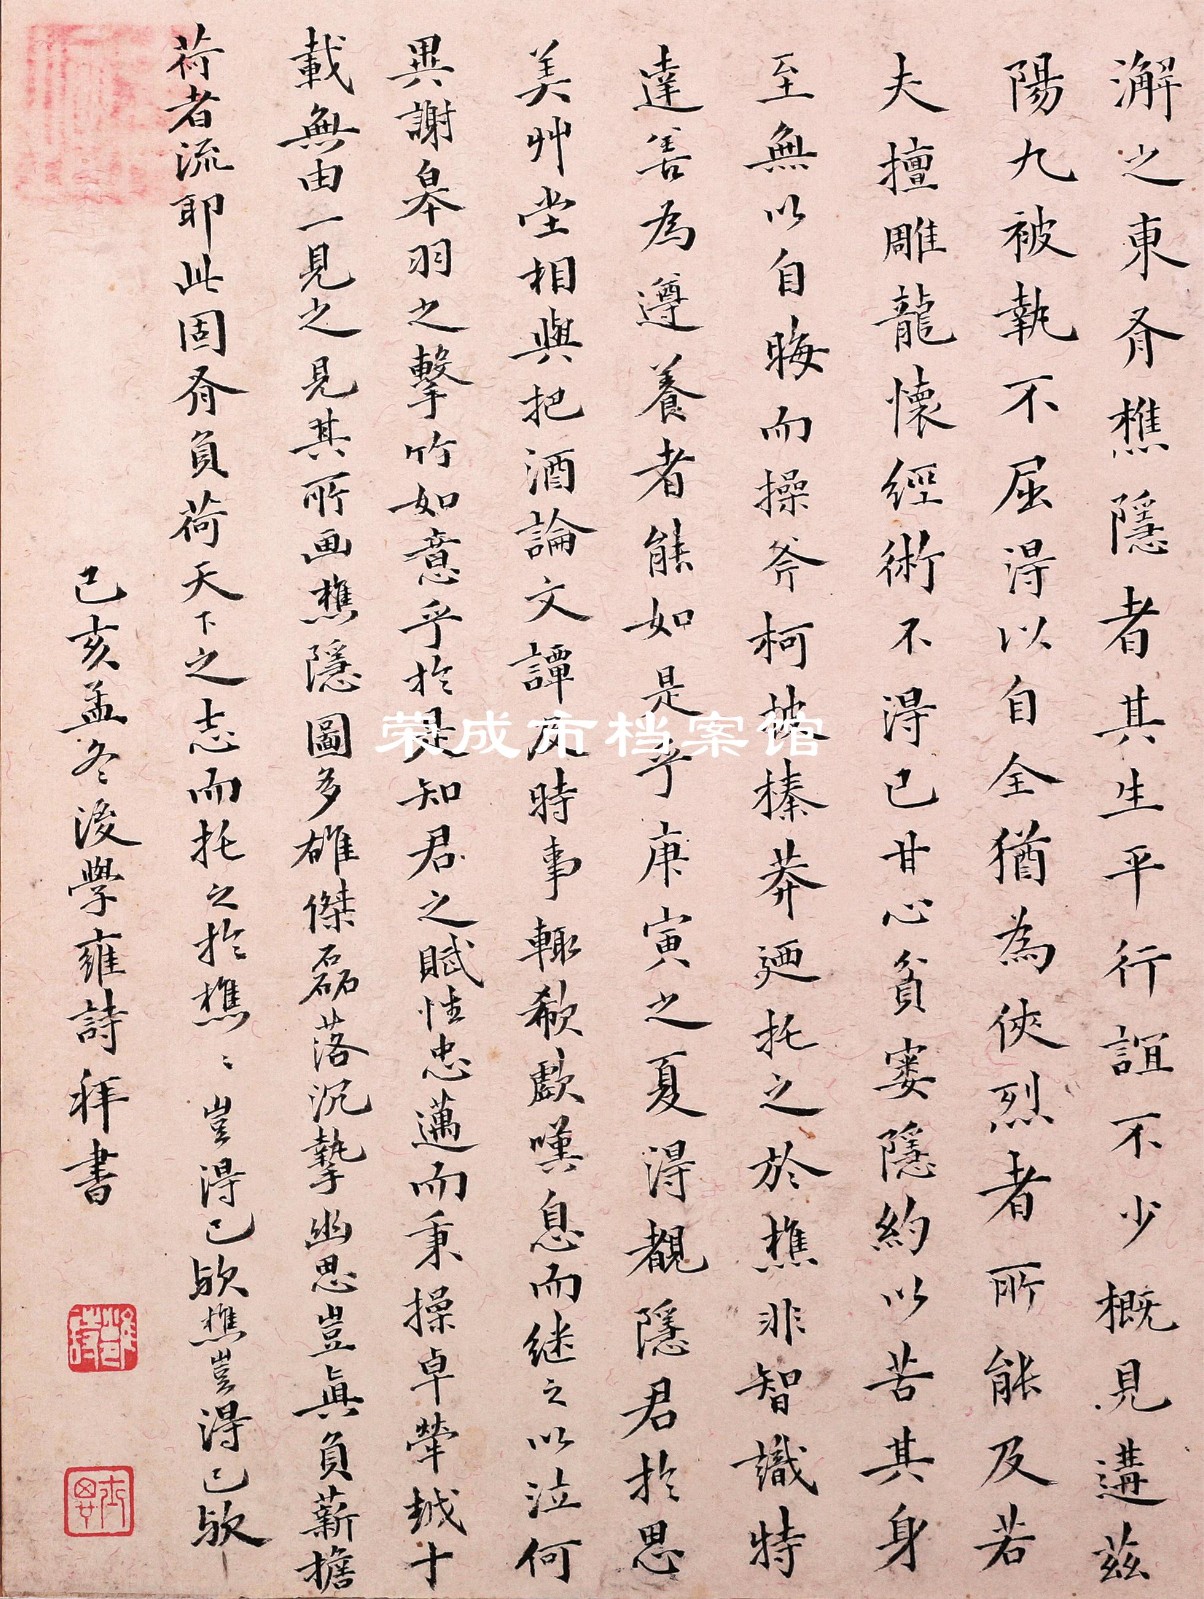 澥之東有樵隱者其生平行誼不少概見遘茲
陽九被執不屈得以自全猶為俠烈者所能及若
夫擅雕龍懷經術不得已甘心貧窶隱約以苦其身
至無以自晦而操斧柯披榛莽迺托之於樵非智識特
達善為遵養者能如是乎庚寅之夏得覩隱君於思
美艸堂相與把酒論文譚及時事輒欷歔嘆息而継之以泣何
異謝皋羽之擊竹如意乎於是知君之賦性忠邁而秉操卓犖越十
載無由一見之見其所画樵隱圖多雄傑磊落沉摯幽思豈真負薪擔
荷者流耶此固有負荷天下之志而托之於樵〻豈得已欤樵豈得已欤
己亥孟冬後學雍詩拜書
荣成市档案馆